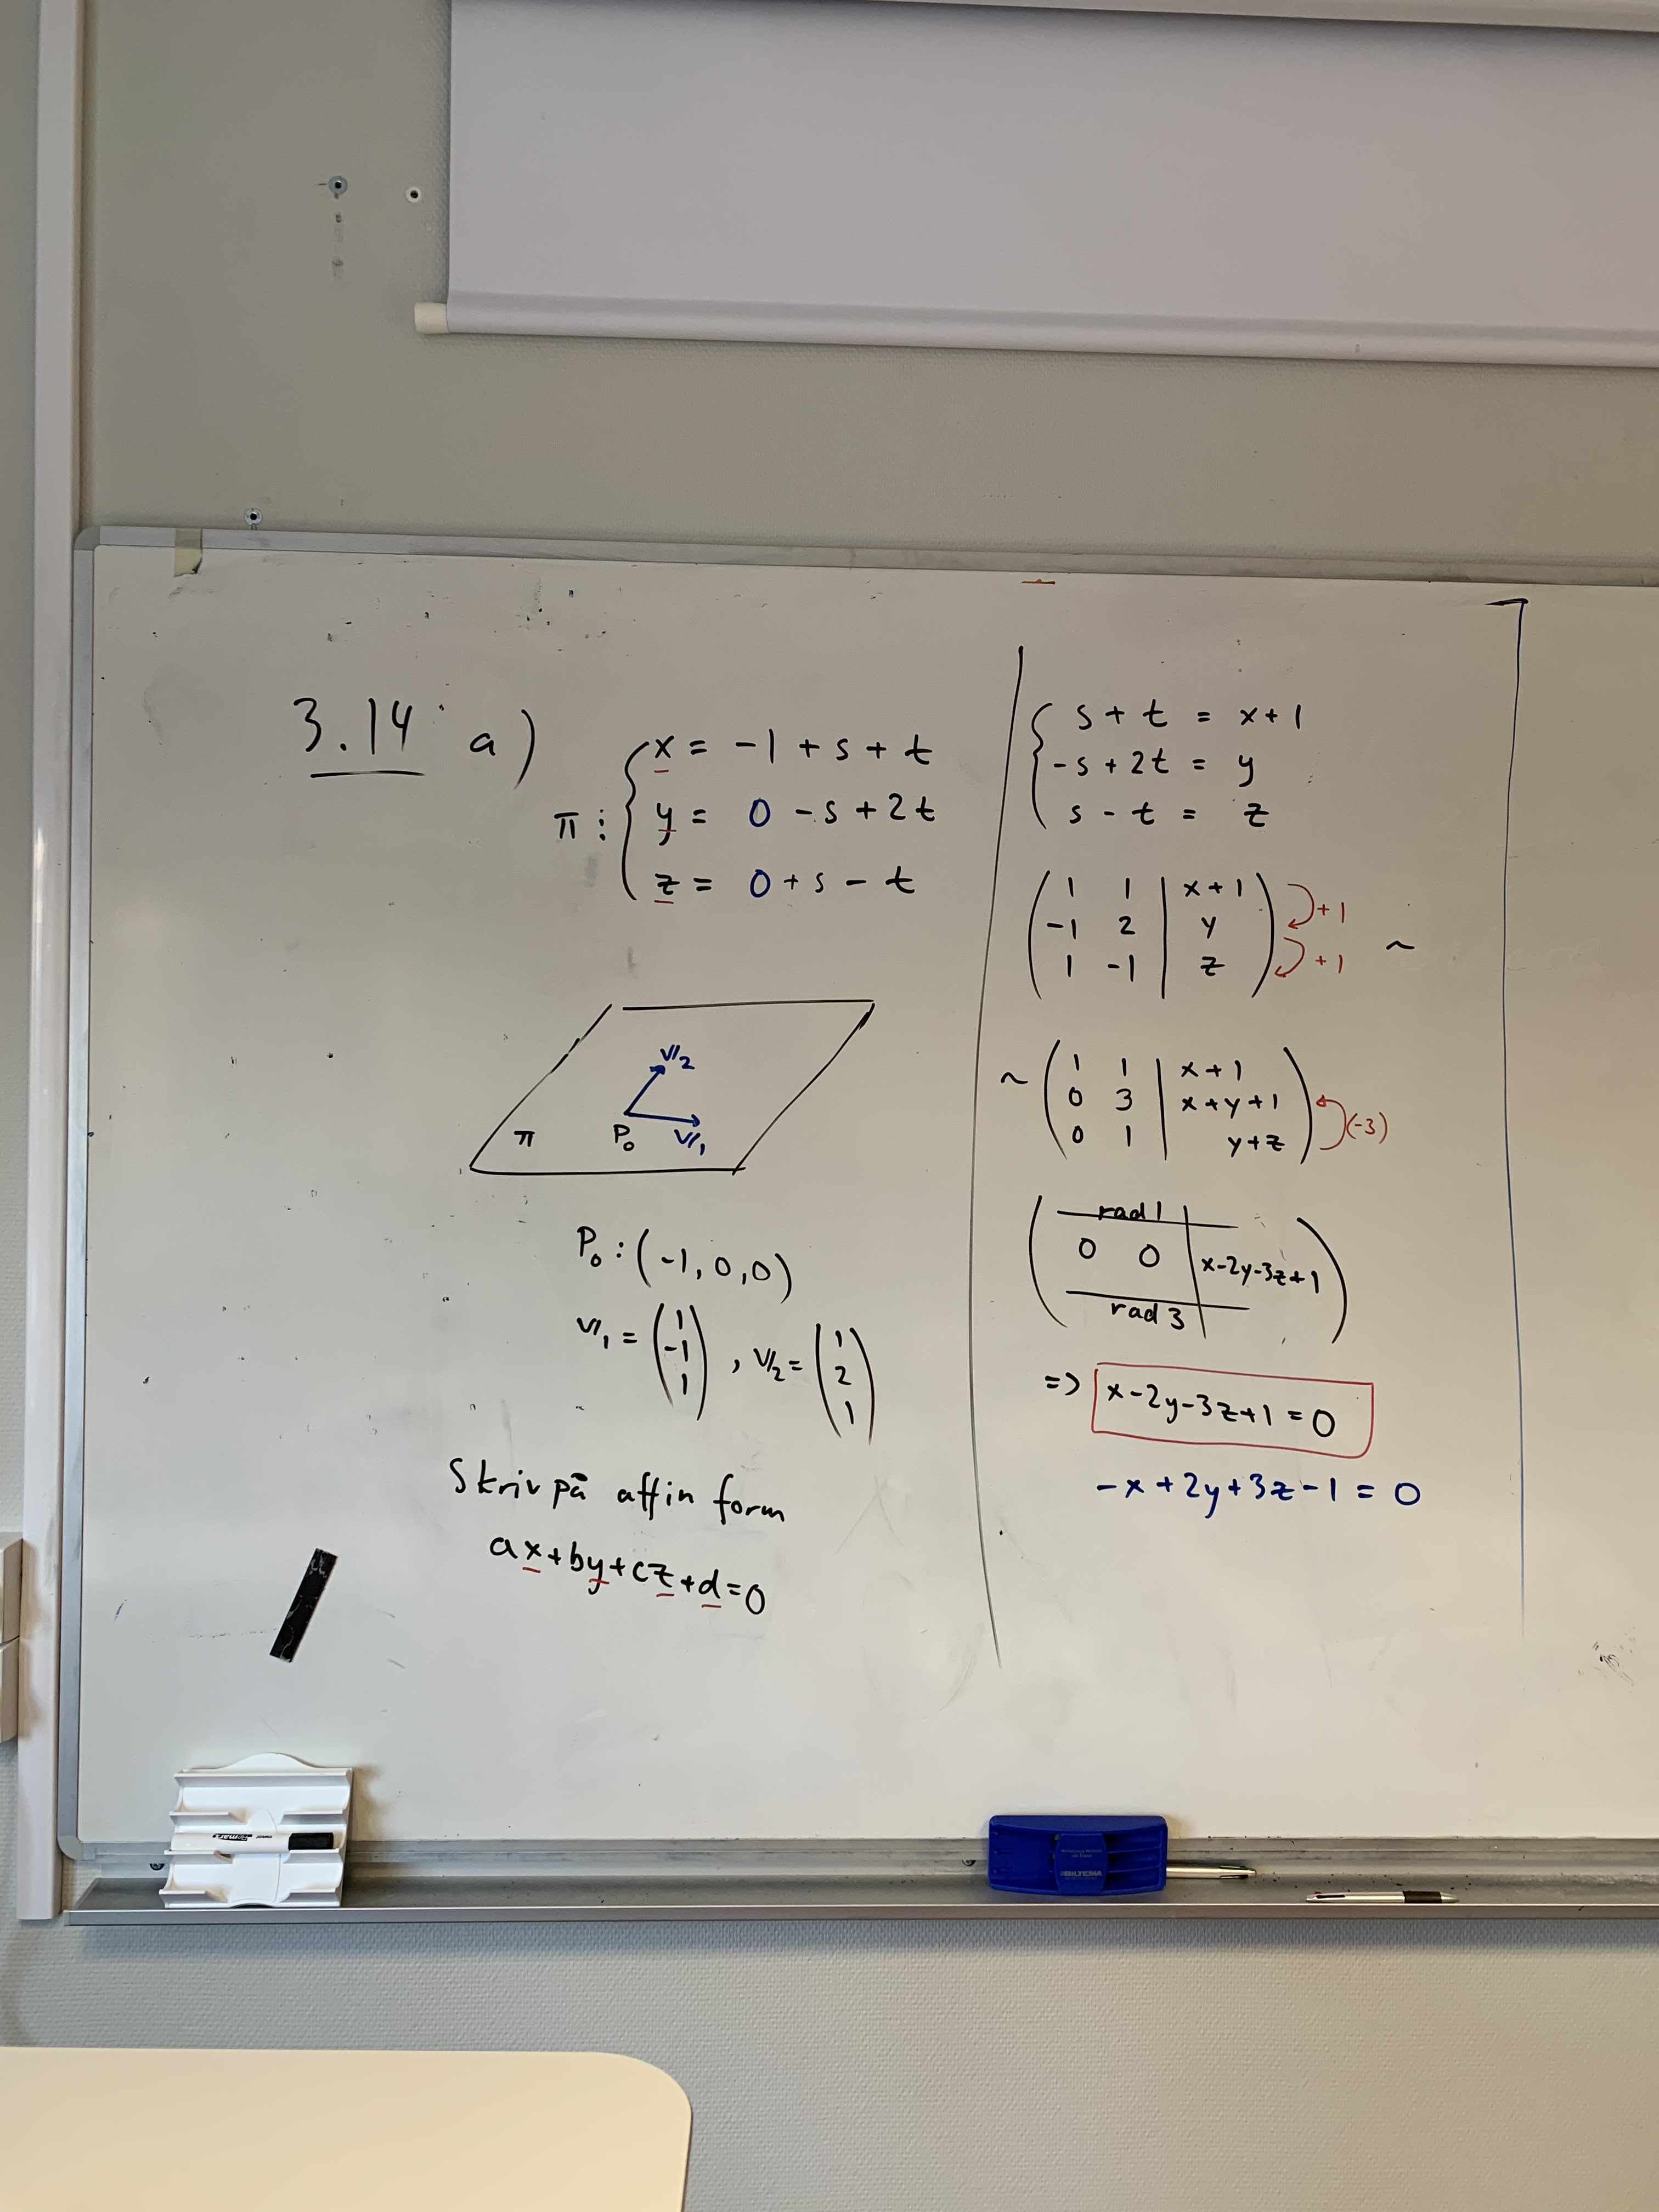 3.14 a)
π: { x = -1 + s + t
y = 0 - s + 2t
z = 0 + s - t
π P₀ v₁ v₂
P₀ : (-1, 0, 0)
v₁ = (1 -1 1) , v₂ = (1 2 1)
Skriv på affin form
ax+by+cz+d=0
{ s + t = x+1
-s + 2t = y
s - t = z
( 1 1 | x+1 ) +1
-1 2 | y
1 -1 | z ) +1 ~
~ ( 1 1 | x+1
0 3 | x+y+1
0 1 | y+z ) (-3)
( rad 1
0 0 | x-2y-3z+1 )
rad 3
=> x-2y-3z+1=0
-x+2y+3z-1=0
BILTEMA